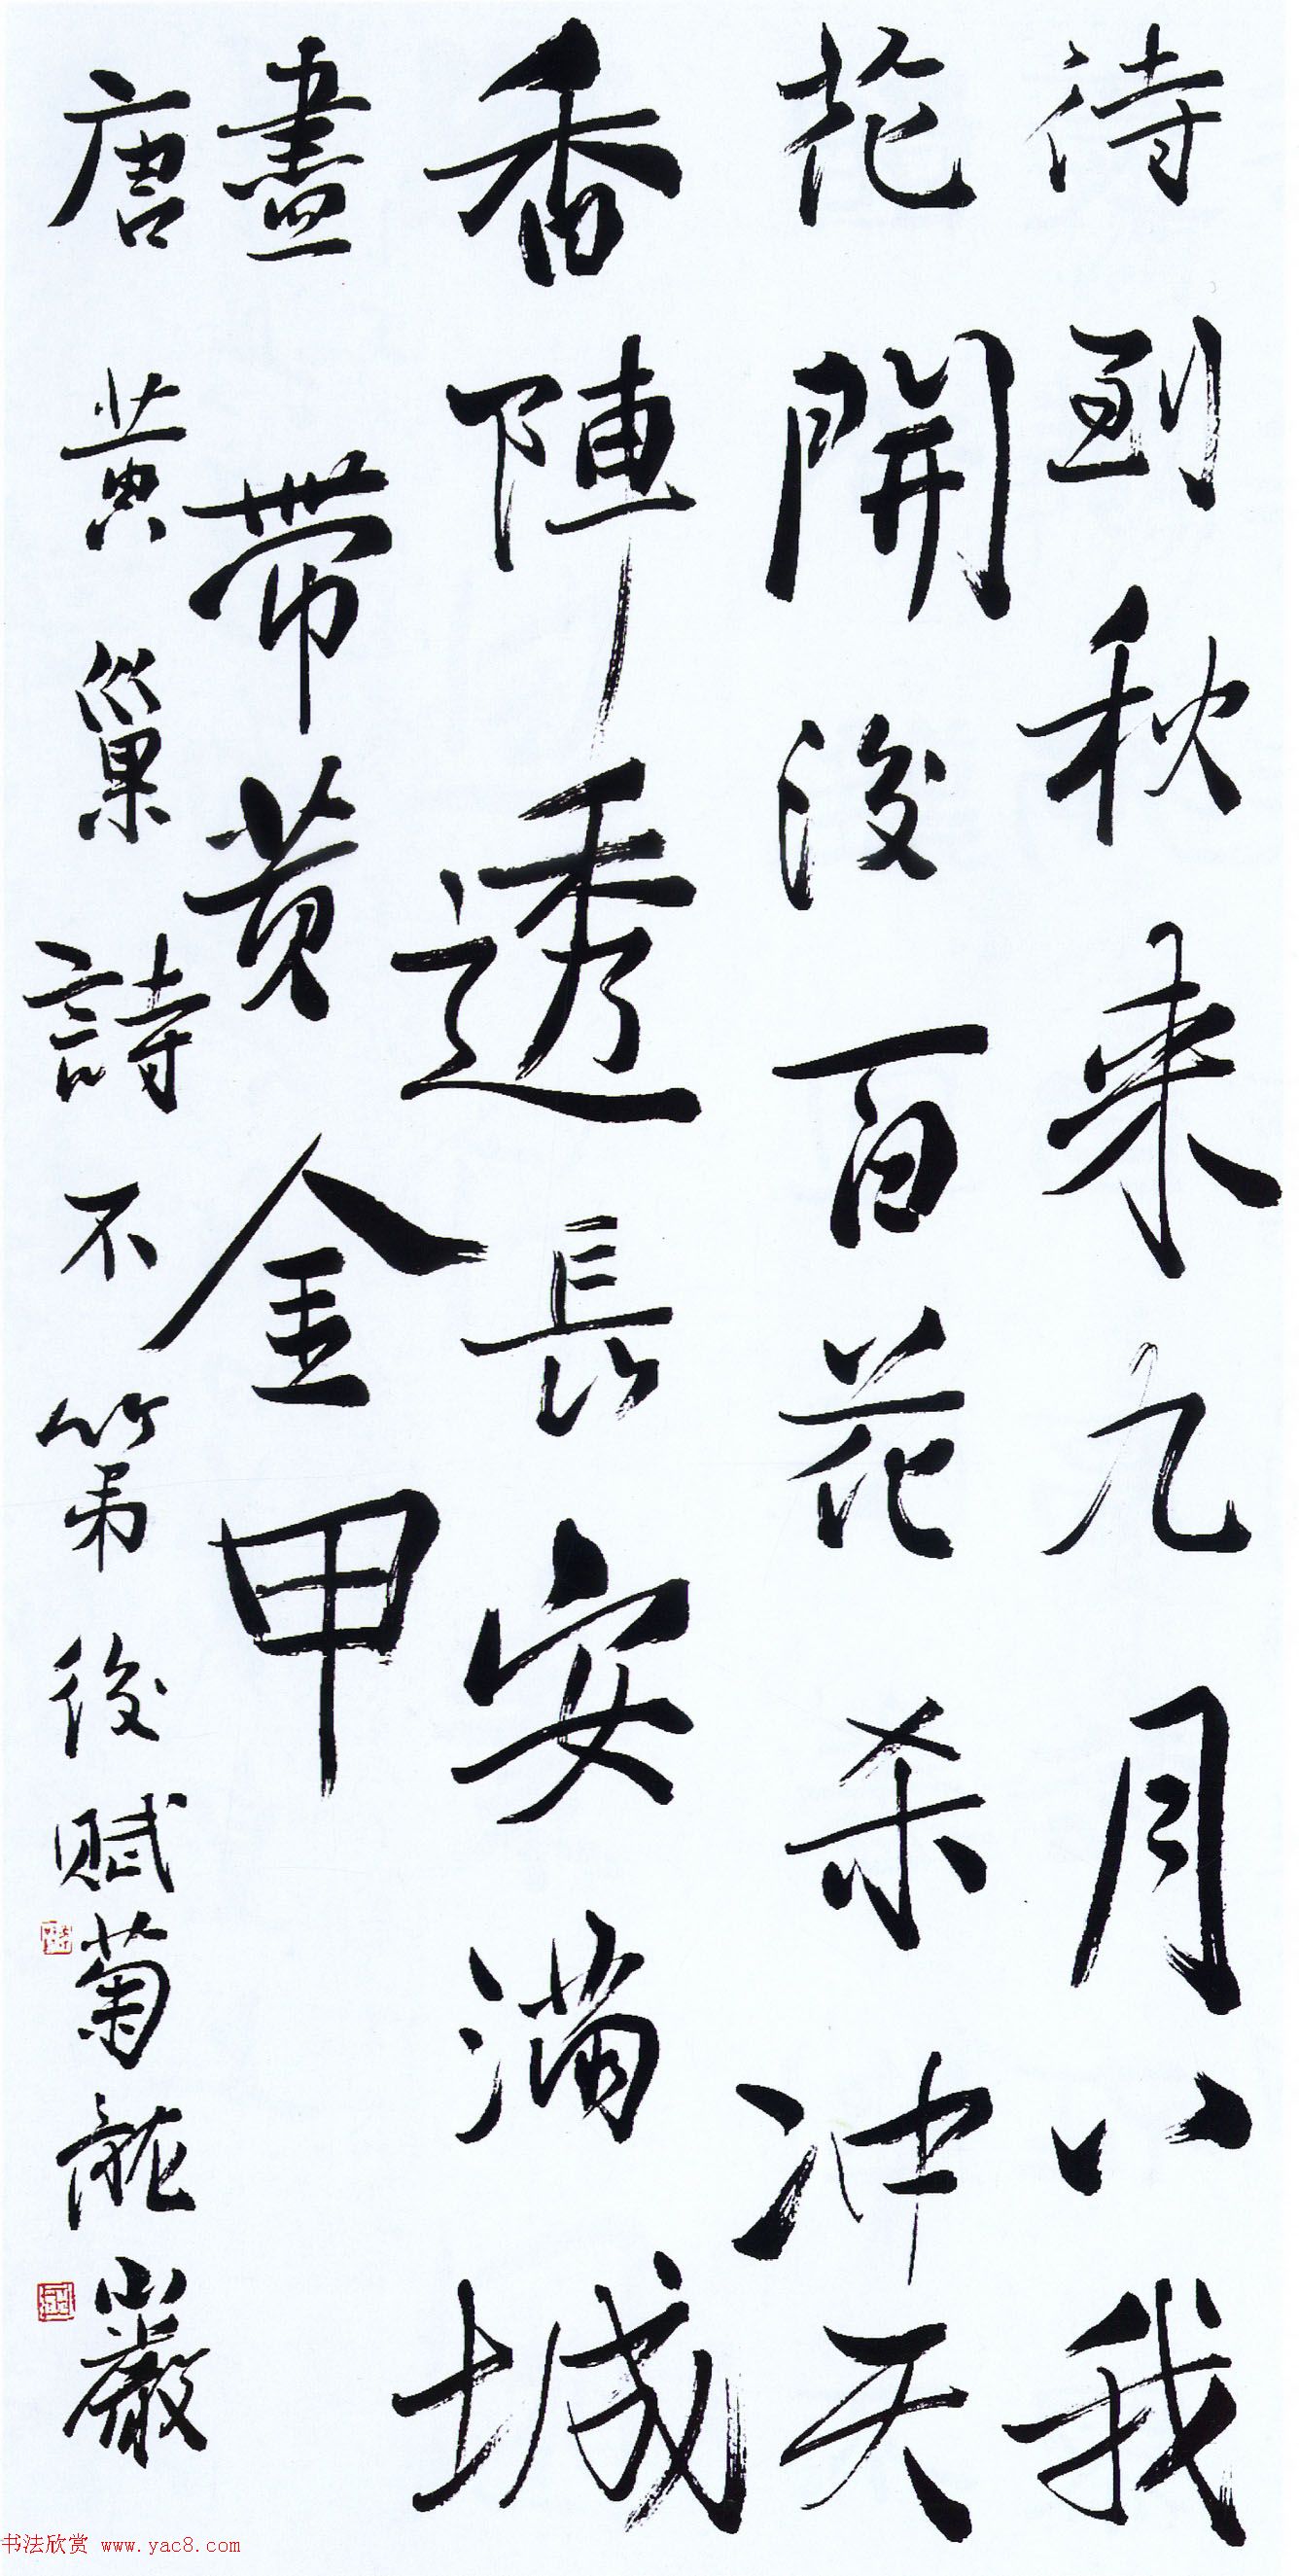 待到秋来九月八我
花開後百花杀冲天
香陣透長安满城
盡带黄金甲
唐黄巢詩不第後賦菊龍巖
书法欣赏 www.yac8.com